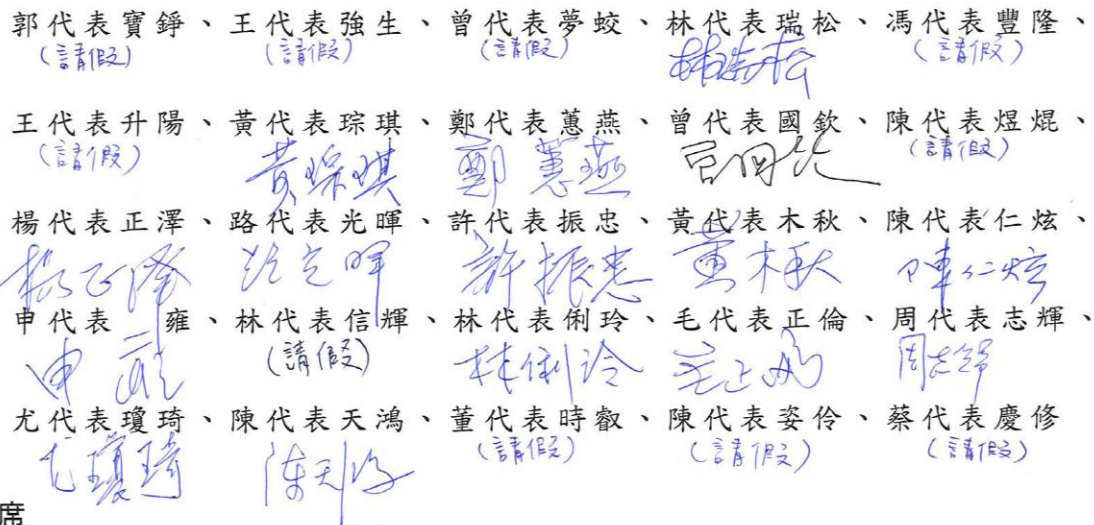 郭代表寶錚、王代表強生、曾代表夢蛟、林代表瑞松、馮代表豐隆、
(請假) (請假) (請假) 林瑞松 (請假)
王代表升陽、黃代表琮琪、鄭代表蕙燕、曾代表國欽、陳代表煜焜、
(請假) 黃琮琪 鄭蕙燕 (請假)
楊代表正澤、路代表光暉、許代表振忠、黃代表木秋、陳代表仁炫、
楊正澤 路光暉 許振忠 黃木秋 陳仁炫
申代表 雍、林代表信輝、林代表俐玲、毛代表正倫、周代表志輝、
申雍 (請假) 林俐玲 毛正倫 周志輝
尤代表瓊琦、陳代表天鴻、董代表時叡、陳代表姿伶、蔡代表慶修
尤瓊琦 陳天鴻 (請假) (請假) (請假)
席